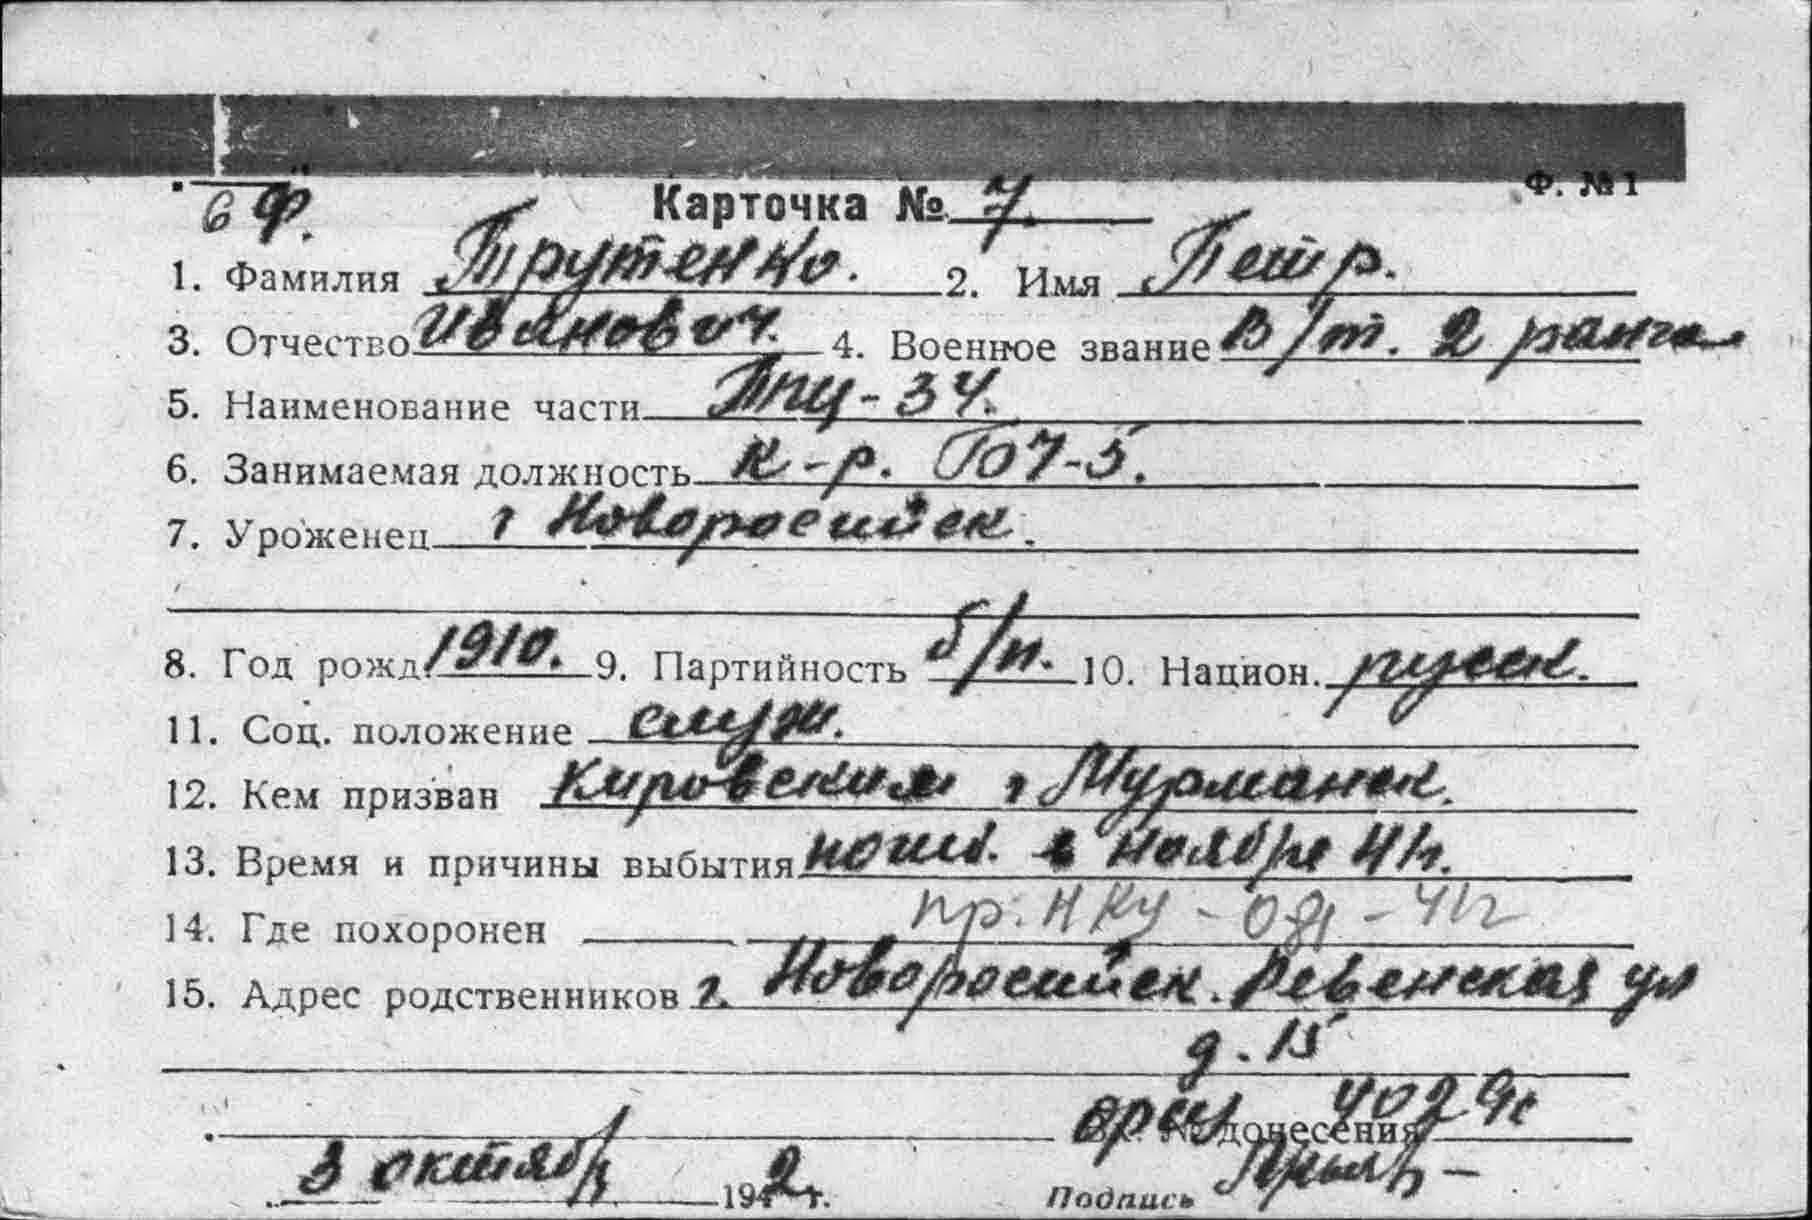 Ф. №1
6 Ф.
Карточка № 7.
1. Фамилия Трутенко. 2. Имя Петр.
3. Отчество Иванович. 4. Военное звание В/т. 2 ранга
5. Наименование части ТПЩ-34.
6. Занимаемая должность К-р. БЧ-5.
7. Уроженец г Новоросийск.
8. Год рожд. 1910. 9. Партийность б/п. 10. Национ. русск.
11. Соц. положение служ.
12. Кем призван Кировским г Мурманск.
13. Время и причины выбытия погиб. в ноябре 41г.
14. Где похоронен пр. НКУ - 041г
15. Адрес родственников г. Новоросийск. Ревенская ул
д. 15
донесения
3 октября 1942 г. Подпись